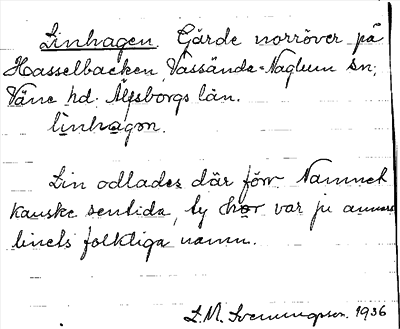 Linhagen. Gärde norröver på
Hasselbacken, Vassända-Naglum sn,
Väne hd. Älfsborgs län.
linhagen.
Lin odlades där förr. Namnet
kanske sentida, ty hor var ju annars
linets folkliga namn.
L.M. Svenungsson. 1936